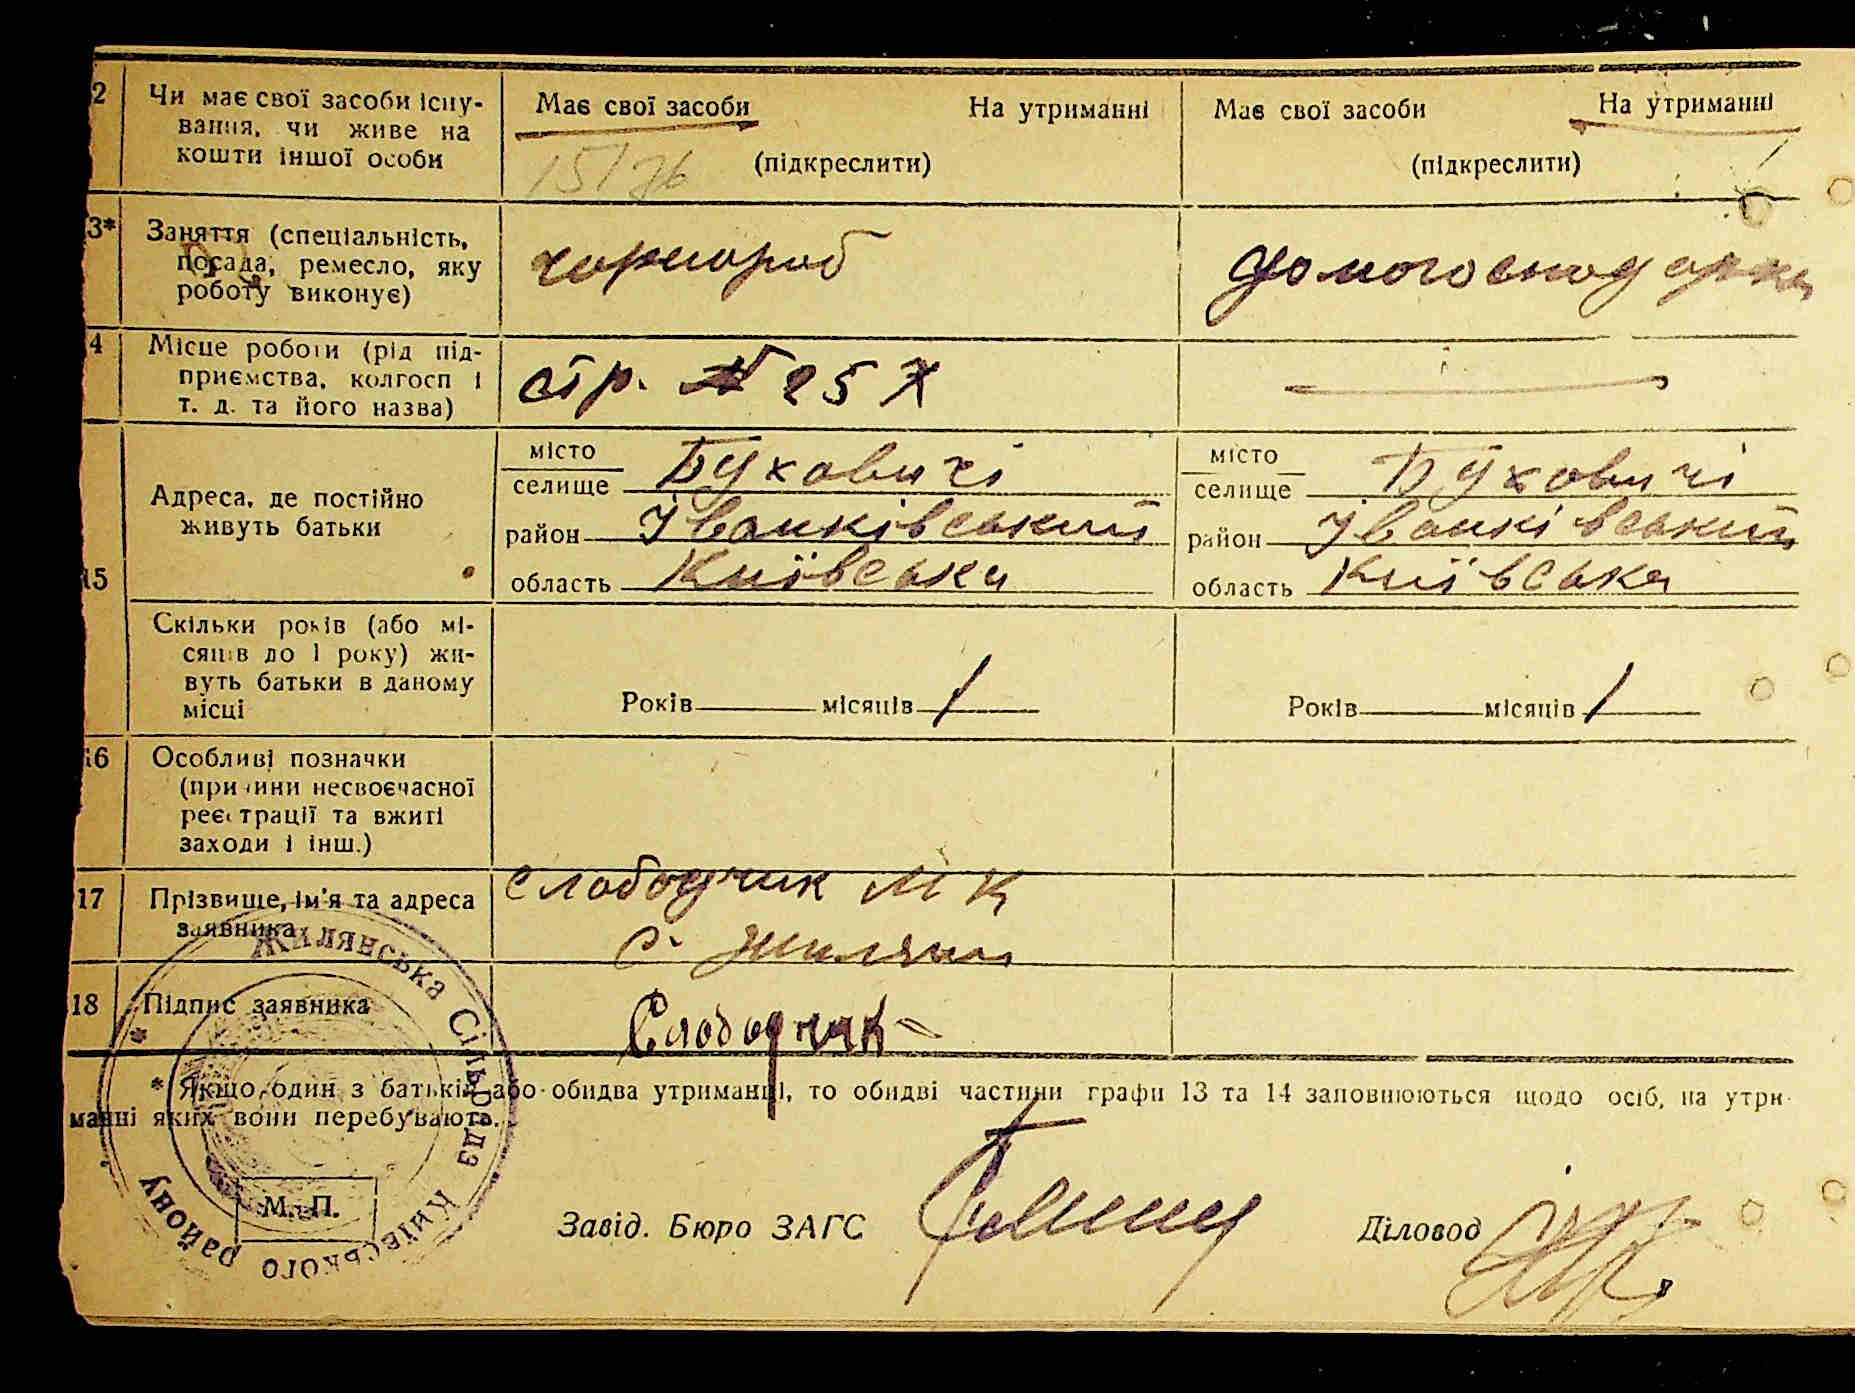 2 Чи має свої засоби існу-
вання, чи живе на
кошти іншої особи
Має свої засоби На утриманні
(підкреслити)
15/76
Має свої засоби На утриманні
(підкреслити)
3* Заняття (спеціальність,
посада, ремесло, яку
роботу виконує)
чорнороб
домогосподарка
4 Місце роботи (рід під-
приємства, колгосп і
т. д. та його назва)
стр. № 25 Х
15 Адреса, де постійно
живуть батьки
місто
селище Буховичі
район Іванківський
область Київська
місто
селище Буховичі
район Іванківський
область Київська
Скільки років (або мі-
сяців до 1 року) жи-
вуть батьки в даному
місці
Років місяців 1
Років місяців 1
16 Особливі позначки
(причини несвоєчасної
реєстрації та вжиті
заходи і інш.)
17 Прізвище, ім'я та адреса
заявника
Слободчик М К
с. Жиляни
18 Підпис заявника
Слободчик
* Якщо один з батьків або обидва утриманці, то обидві частини графи 13 та 14 заповнюються щодо осіб, на утри-
манні яких вони перебувають.
Жилянська Сільрада Київського району
М. П.
Завід. Бюро ЗАГС
Діловод